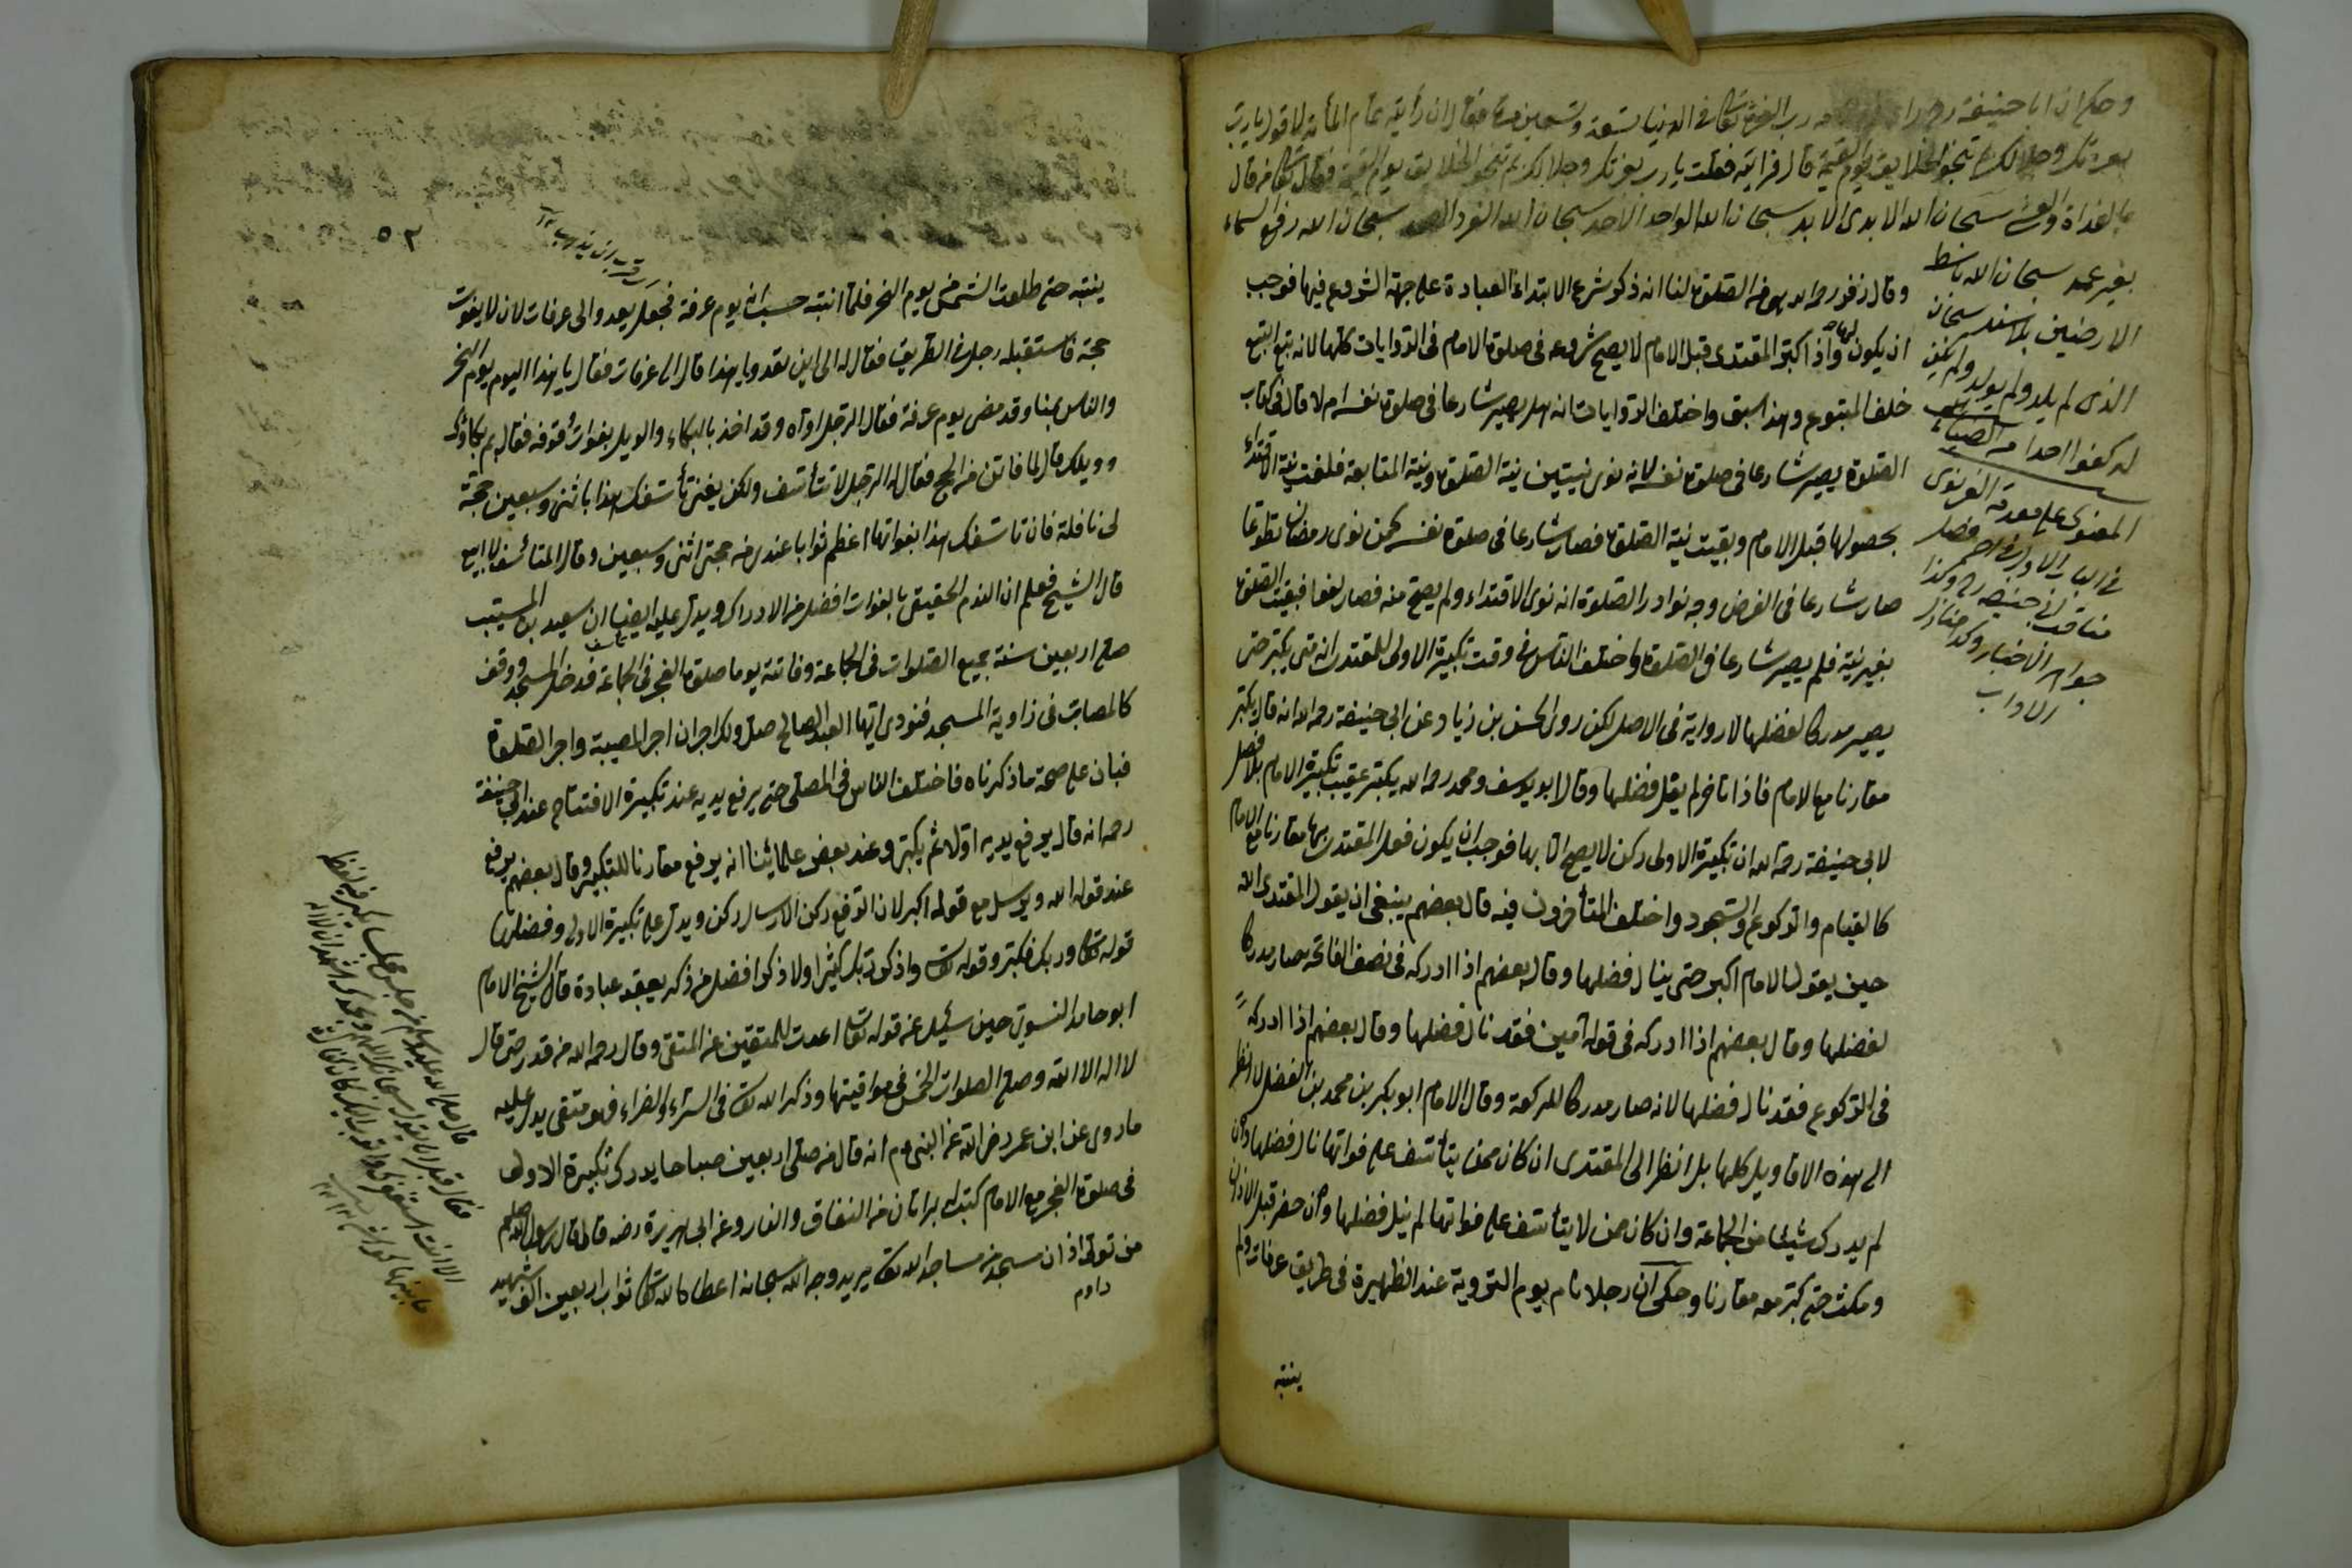 وحكي ان ابا حنيفة رحمه الله رب العزة تعالى في الدنيا تسعة وتسعين مرة فقال ان رأيته تمام المأية لاقول يا رب
بعزتك وجلالك بم تنجو الخلايق يوم القيمة قال فرايته فقلت يا رب بعزتك وجلالك بم تنجو الخلايق يوم القيمة فقال تعالى من قال
بالغداة والعشي سبحان الله الابدي الابد سبحان الله الواحد الاحد سبحان الله الفرد الصمد سبحان الله رافع السماء
بغير عمد سبحان الله باسط
الارضين بلا سند سبحان
الذي لم يلد ولم يولد ولم يكن
له كفوا احد
في الباب الاول
مناقب ابي حنيفة
جواهر الاخبار وكذا
الاداب
وقال زفر رحمه الله هو من الصلوة لنا انه ذكر شرع لابتداء العبادة على جهة الشروع فيها فوجب
ان يكون واذا كبر المقتدى قبل الامام لا يصح شروعه في صلوة الامام في الروايات كلها لانه تبع التبع
خلف المتبوع وهذا سبق واختلف الروايات انه هل يصير شارعا في صلوة نفسه ام لا قال في كتاب
الصلوة يصير شارعا في صلوة نفسه لانه نوى نيتين نية الصلوة ونية المتابعة فلغت نية الاقتداء
بحصولها قبل الامام وبقيت نية الصلوة فصار شارعا في صلوة نفسه كمن نوى رمضان تطوعا
صار شارعا في الفرض وجه نوادر الصلوة انه نوى الاقتداء ولم يصح منه فصار لغوا فبقيت الصلوة
بغير نية فلم يصير شارعا في الصلوة واختلف الناس في وقت تكبيرة الاولى للمقتدى انه متى يكبر حتى
يصير مدركا لفضلها لا رواية في الاصل لكن روى الحسن بن زياد عن ابي حنيفة رحمه الله انه قال يكبر
مقارنا مع الامام فاذا تاخر لم يقل فضلها وقال ابو يوسف ومحمد رحمه الله يكبر عقيب تكبيرة الامام بلا فصل
لابي حنيفة رحمه الله ان تكبيرة الاولى ركن لا يصح الا بها فوجب ان يكون فعل المقتدى بها مقارنا مع الامام
كالقيام والركوع والسجود واختلف المتأخرون فيه قال بعضهم ينبغي ان يقول المقتدى الله
حين يقول الامام اكبر حتى ينال فضلها وقال بعضهم اذا ادركه في نصف الفاتحة صار مدركا
لفضلها وقال بعضهم اذا ادركه في قوله آمين فقد نال فضلها وقال بعضهم اذا ادركه
في الركوع فقد نال فضلها لانه صار مدركا للركعة وقال الامام ابو بكر بن محمد بن الفضل لا انظر
الى هذه الاقاويل كلها بل انظر الى المقتدى ان كان ممن يتأسف على فواتها نال فضلها وان
لم يدرك شيئا من الجماعة وان كان ممن لا يتأسف على فواتها لم ينل فضلها وان حضر قبل الاذان
ومكث حتى كبر معه مقارنا وحكى ان رجلا نام يوم التروية عند الظهيرة في طريق عرفات ولم
ينتبه
٥٢
ينتبه حتى طلعت الشمس من يوم النحر فلما انتبه حسب انه يوم عرفة فجعل يعدو الى عرفات لان لا يفوت
حجه فاستقبله رجل في الطريق فقال له الى اين تعدو يا هذا قال الى عرفات فقال يا هذا اليوم يوم النحر
والناس بمنا وقد مضى يوم عرفة فقال الرجل اواه وقد اخذ بالبكاء والويل بفوات وقوفه فقال بم بكاؤك
وويلك قال لما فاتنى من الحج فقال له الرجل لا تتأسف ولكن بعنى تأسفك هذا باثنى وسبعين حجة
لى نافلة فان تاسفك هذا بفواتها اعظم ثوابا عندى من حجتى اثنى وسبعين وقال المتأسف لا ابيع
قال الشيخ فعلم ان الندم الحقيقى بالفوات افضل من الادراك ويدل عليه ايضا ان سعيد بن المسيب
صلى اربعين سنة جميع الصلوات في الجماعة وفاتته يوما صلوة الفجر في الجماعة فدخل المسجد ووقف
كالمصاب في زاوية المسجد فنودى ايها العبد الصالح صل ولك اجران اجر المصيبة واجر الصلوة
فبان على صحة ما ذكرناه فاختلف الناس في المصلى متى يرفع يديه عند تكبيرة الافتتاح عند ابي حنيفة
رحمه انه قال يرفع يديه اولا ثم يكبر وعند بعض علمائنا انه يرفع مقارنا للتكبير وقال بعضهم يرفع
عند قوله الله ويرسل مع قوله اكبر لان الرفع ركن الارسال ركن ويدل على تكبيرة الاولى وفضلها
قوله تعالى وربك فكبر وقوله تعالى واذكر ربك كثيرا ولا ذكر افضل من ذكر يعقد عبادة قال الشيخ الامام
ابو حامد النسوى حين سئل عن قوله تعالى اعدت للمتقين من المتقى وقال رحمه الله من قدر حتى قال
لا اله الا الله وصلى الصلوات الخمس في مواقيتها وذكر الله تعالى في السراء والضراء فهو متقى يدل عليه
ما روى عن ابن عمر رضى الله عن النبى عم انه قال من صلى اربعين صباحا يدرك تكبيرة الاولى
في صلوة الفجر مع الامام كتب له براتان من النفاق والنار وعن ابى هريرة رضه قال قال رسول الله صلعم
من تولى اذان مسجد من مساجد الله تعالى يريد وجه الله سبحانه اعطاه الله تعالى ثواب اربعين الف شهيد
داوم